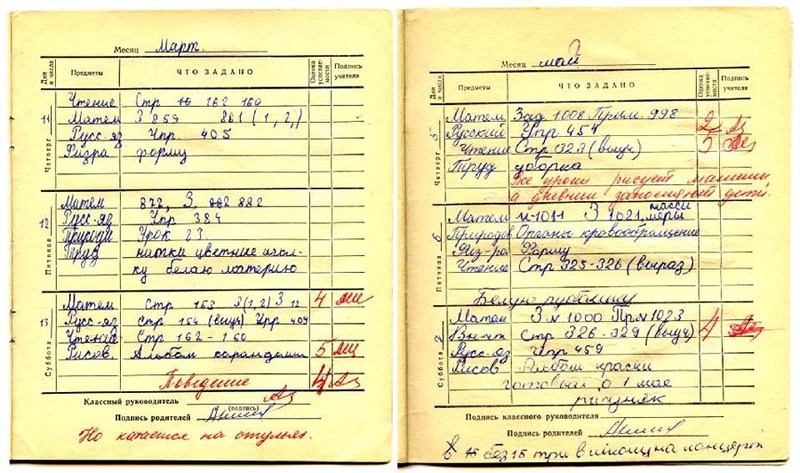 Месяц Март.
Дни и числа Предметы ЧТО ЗАДАНО Оценка успеваемости Подпись учителя
Четверг 11
Чтение Стр 162 160
Матем З 859 861 (1, 2,)
Русс-яз Упр. 405
Физра форму
Пятница 12
Матем 872, З. 882
Русс-яз Упр 384
Природ Урок 23
Труд нитки цветные игол-
ку белаю материю
Суббота 13
Матем Стр 153 3(1,2) З 12 4
Русс-яз Стр 154 (выуч) Упр 409
Чтение Стр 162-160
Рисов. Альбом карандаши 5
Поведение 4
Классный руководитель
(подпись)
Подпись родителей
Но катается на стульях.
Месяц май
Дни и числа Предметы ЧТО ЗАДАНО Оценка успеваемости Подпись учителя
Четверг 5
Матем Зад 1008 Прим. 998
Русский Упр 454 2
Чтение Стр 323 (выуч) 5
Труд уборка
Все уроки рисует машины
а дневник заполняет дома.
Пятница 6
Матем N-1011 З 1021, массы меры
Природов Органы кровообращение
Физ-ра Форму
Чтение Стр 325-326 (выраз)
Белую рубашку
Суббота 7
Матем З N 1000 Пр. N 1023
Вн-чт Стр 326-329 (выуч) 4
Русс-яз Упр 459
Рисов Альбом краски
готовый о 1 мае
рисунок
Подпись классного руководителя
Подпись родителей
в без 15 три в школу на концерт